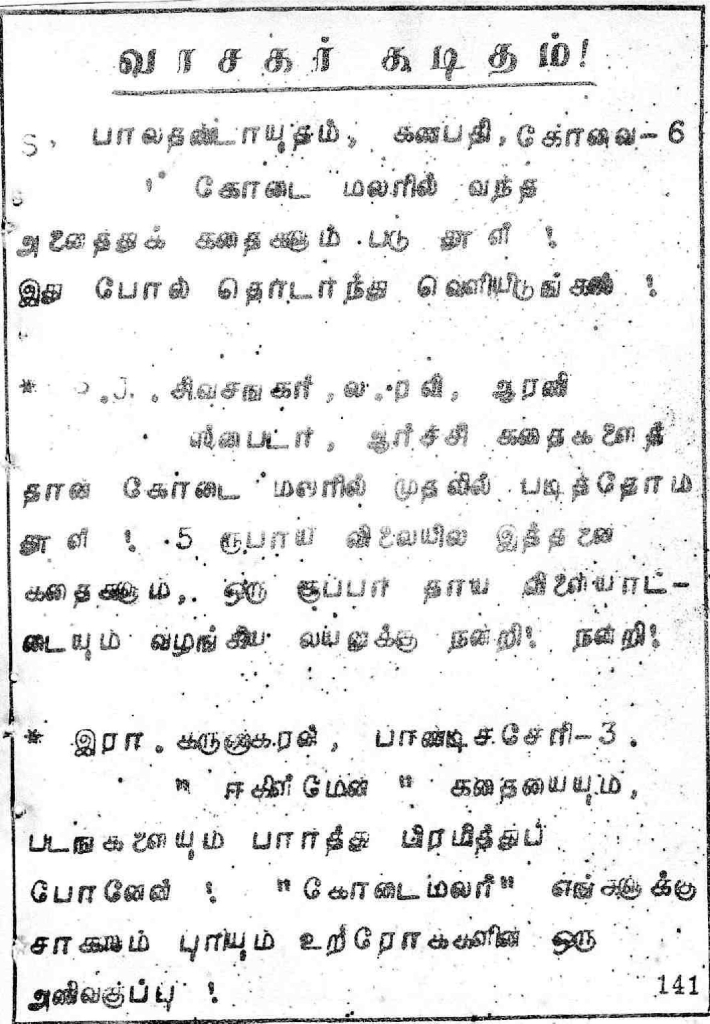 வாசகர் கடிதம்!
S. பாலதண்டாயுதம், கணபதி, கோவை-6
" கோடை மலரில் வந்த
அனைத்துக் கதைகளும் படு தூள் !
இது போல் தொடர்ந்து வெளியிடுங்கள் !
* சிவசங்கர், ல. ரவி, ஆரணி
ஸ்பைடர், ஆர்ச்சி கதைகளைத்
தான் கோடை மலரில் முதலில் படித்தோம்
தூள் ! 5 ரூபாய் விலையில் இத்தனை
கதைகளும், ஒரு சூப்பர் தாய விளையாட்-
டையும் வழங்கிய லயனுக்கு நன்றி! நன்றி!
* இரா. கருணாகரன், பாண்டிச்சேரி-3.
" ஈகிள்மேன் " கதையையும்,
படங்களையும் பார்த்து பிரமித்துப்
போனேன் ! "கோடைமலர்" எங்களுக்கு
சாகஸம் புரியும் உறீரோக்களின் ஒரு
அணிவகுப்பு !
141